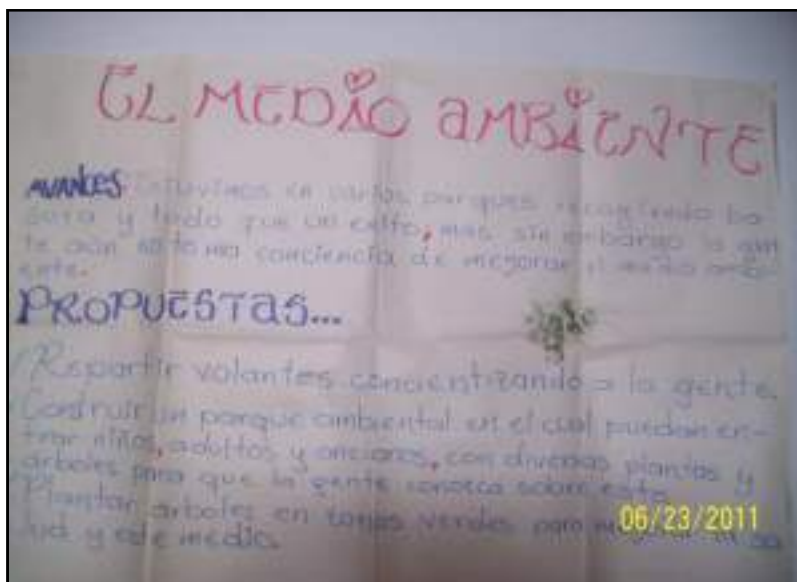 EL MEDIO AMBIENTE
AVANCES Estuvimos en varios parques recogiendo ba-
sura y todo fue un exito, mas sin embargo la gen
te aún no toma conciencia de mejorar el medio ambi-
ente.
PROPUESTAS...
Repartir volantes concientizando a la gente.
Construir un parque ambiental en el cual puedan en-
trar niños, adultos y ancianos, con diversas plantas y
arboles para que la gente conosca sobre esto
Plantar arboles en zonas verdes para la sa
lud y este medio.
06/23/2011